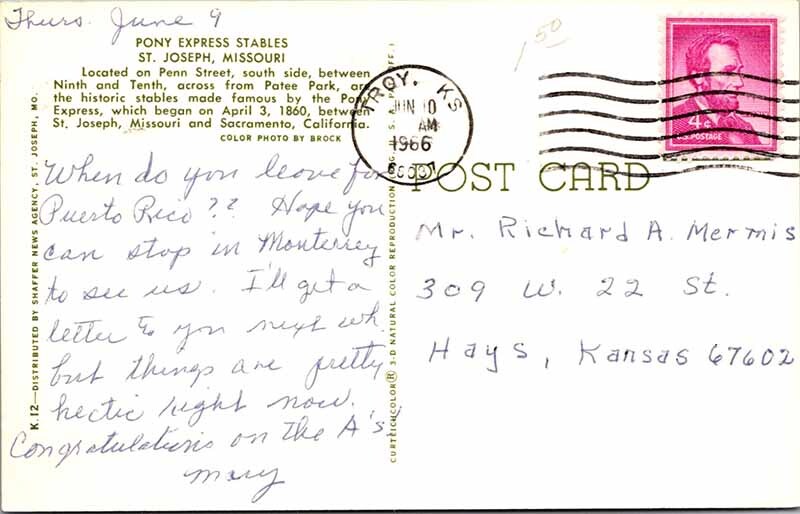 Thurs. June 9
PONY EXPRESS STABLES
ST. JOSEPH, MISSOURI
Located on Penn Street, south side, between
Ninth and Tenth, across from Patee Park, are
the historic stables made famous by the Pony
Express, which began on April 3, 1860, between
St. Joseph, Missouri and Sacramento, California.
COLOR PHOTO BY BROCK
When do you leave for
Puerto Rico?? Hope you
can stop in Monterrey
to see us. I'll get a
letter to you next wk.
but things are pretty
hectic right now.
Congratulations on the A's!
Mary
K.12—DISTRIBUTED BY SHAFFER NEWS AGENCY, ST. JOSEPH, MO.
CURTEICHCOLOR® 3-D NATURAL COLOR REPRODUCTION
1 50
TROY, KS
JUN 10
AM
1966
4¢
POSTAGE
POST CARD
Mr. Richard A. Mermis
309 W. 22 St.
Hays, Kansas 67602